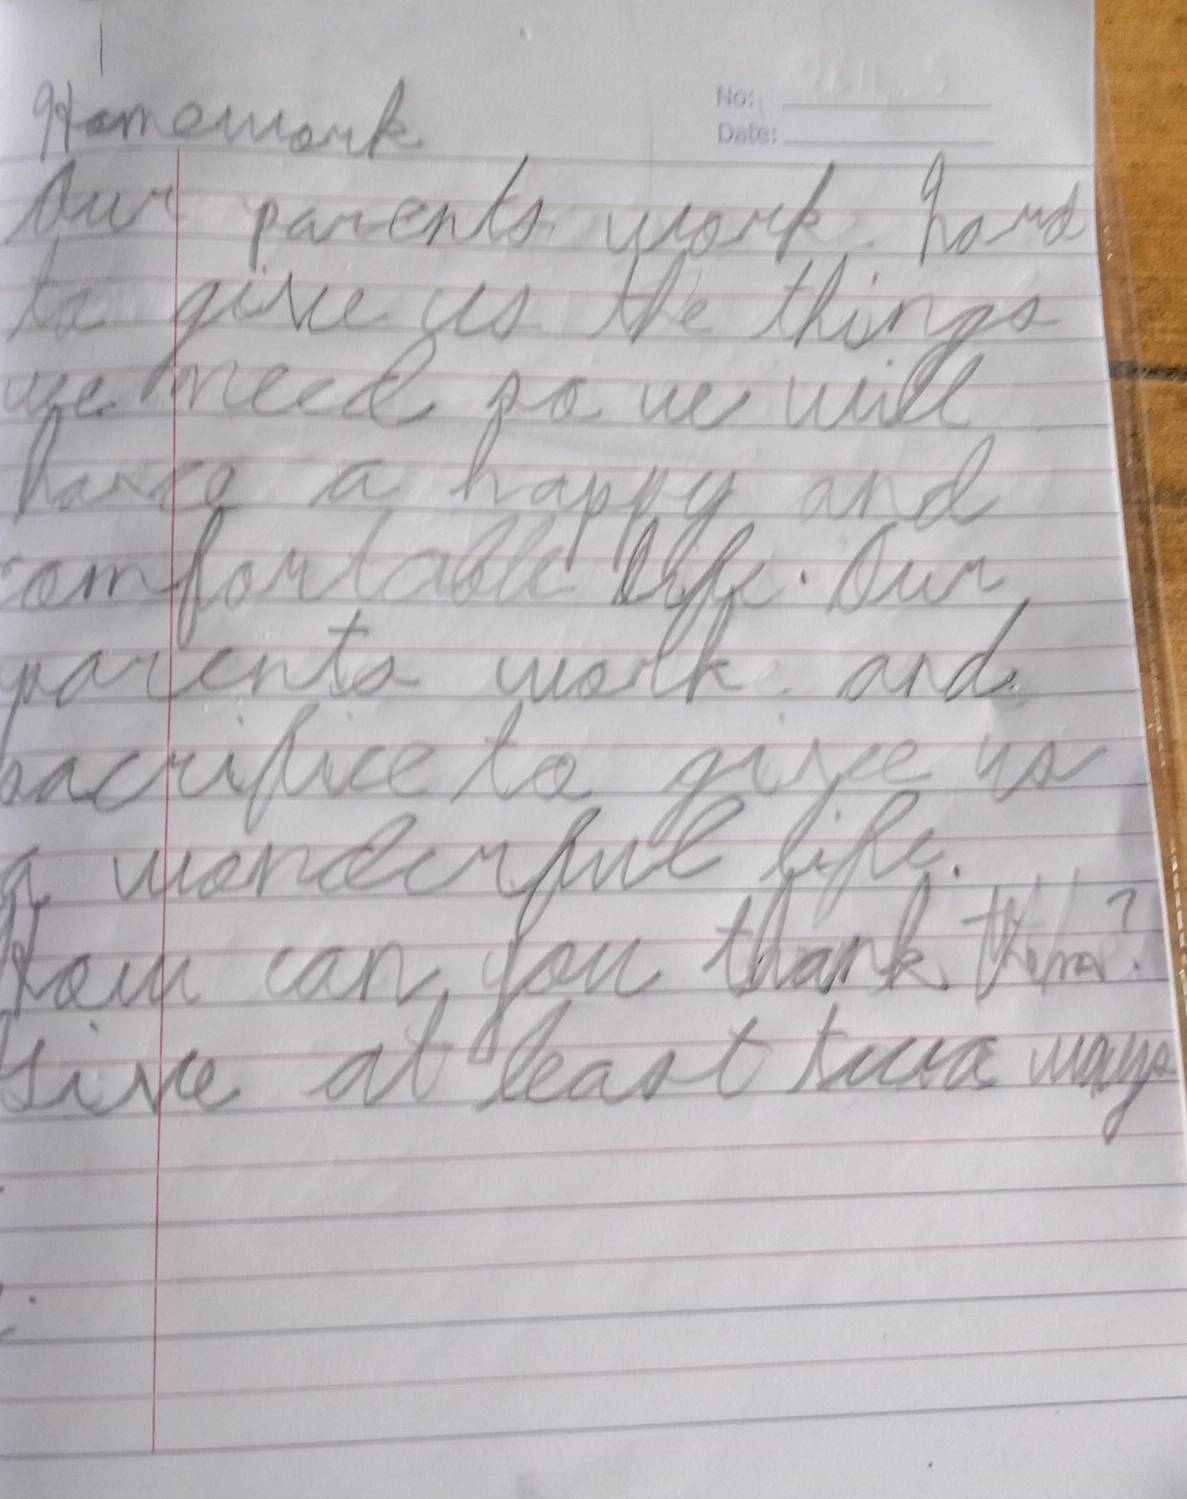 Homework
No:
Date:
Our parents work hard
to give us the things
we need so we will
have a happy and
comfortable life. Our
parents work and
sacrifice to give us
a wonderful life.
How can you thank them?
Give at least two ways